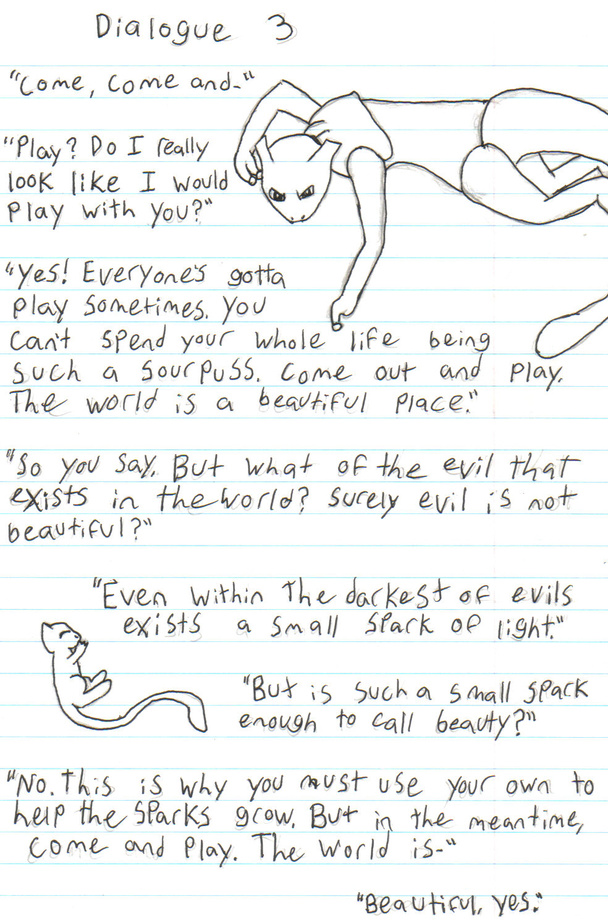 Dialogue 3
"Come, come and-"
"Play? Do I really
look like I would
play with you?"
"Yes! Everyone's gotta
play sometimes. You
can't spend your whole life being
such a sourpuss. Come out and play.
The world is a beautiful place."
"So you say. But what of the evil that
exists in the world? Surely evil is not
beautiful?"
"Even within the darkest of evils
exists a small spark of light."
"But is such a small spark
enough to call beauty?"
"No. This is why you must use your own to
help the sparks grow. But in the meantime,
come and play. The world is-"
"Beautiful, yes."